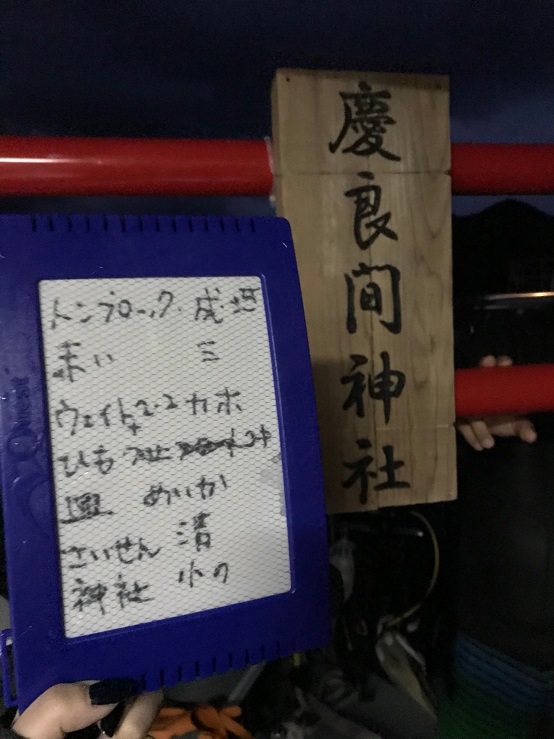 慶良間神社
トンブロック 成垣
赤い 三
ウェイト2.2 カホ
ひも
皿 めいか
さいせん 清
神社 小の